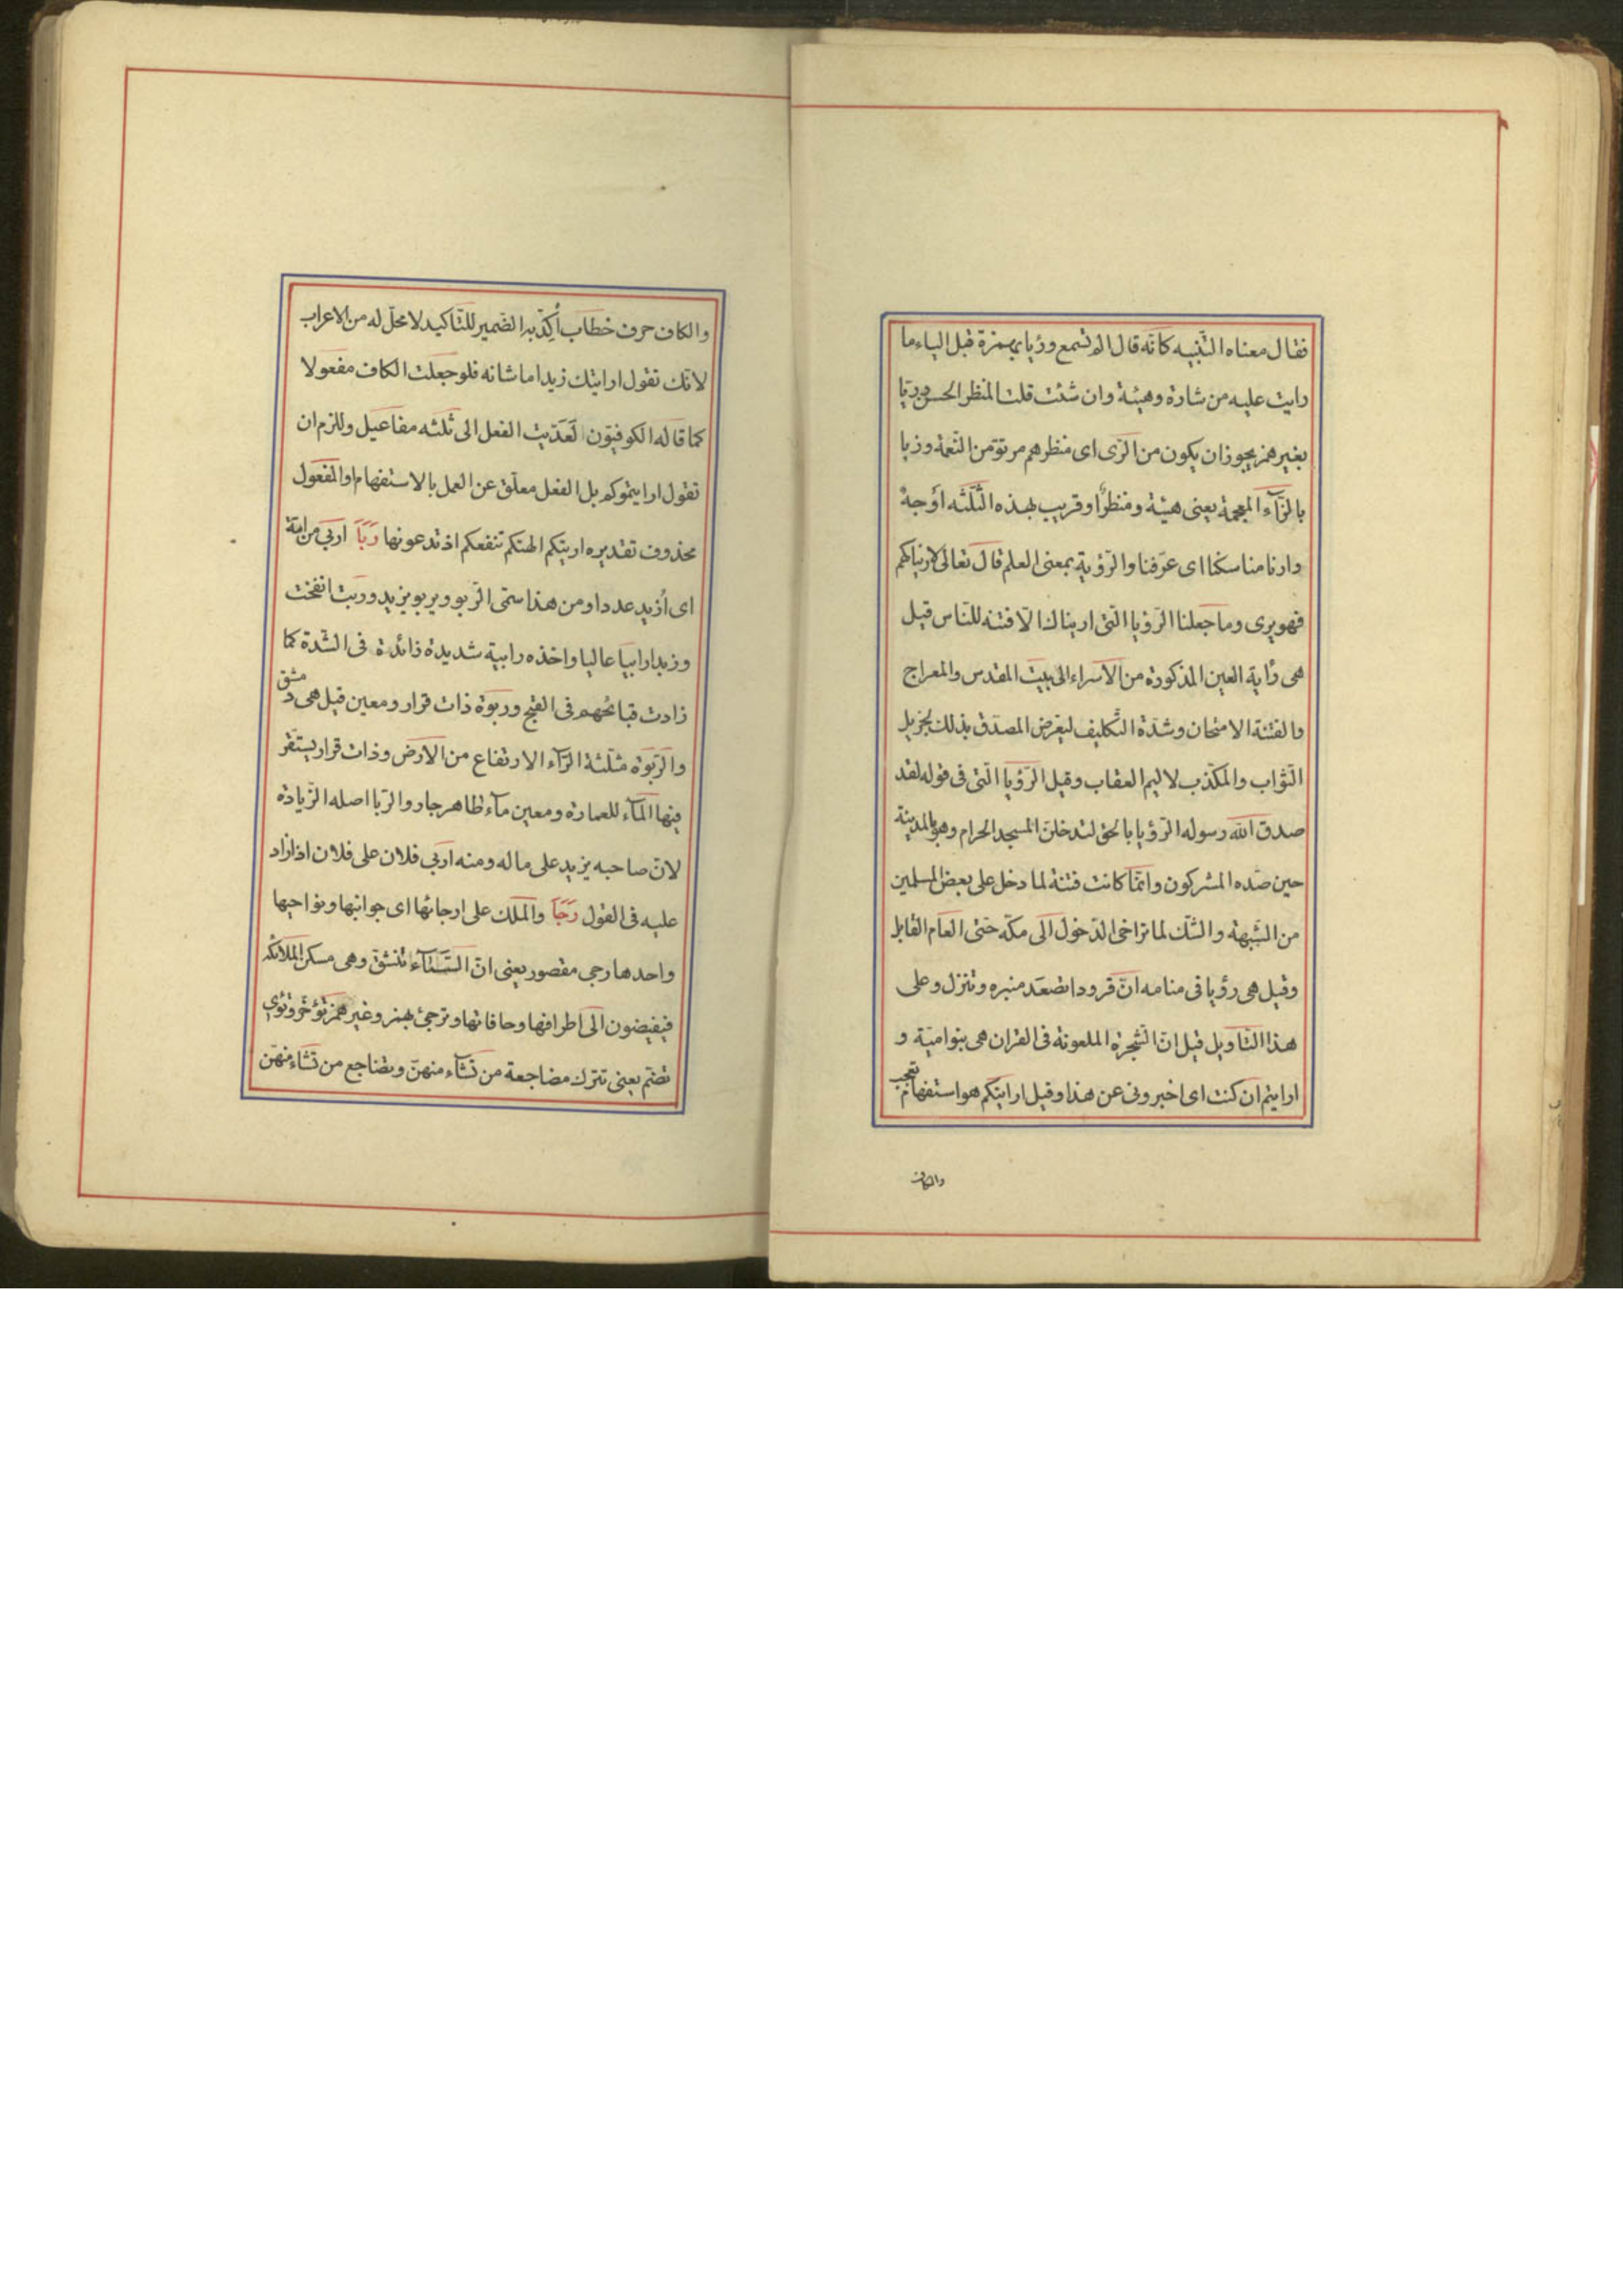 فقال معناه التنبيه كانّه قال الم تسمع ورؤيا بهمزة قبل الياء ما
رايت عليه من شارة وهيئة وان شئت قلت المنظر الحسن وريّا
بغير همز يجوز ان يكون من الرّى اى منظرهم مرتو من النّعمة وزيا
بالزّآء المعجمة يعنى هيئة ومنظرًا وقريب بهذه الثّلثه اوجهٌ
وارنا مناسكنا اى عرّفنا والرّؤية بمعنى العلم قال تعالى لاريناكهم
فهو يرى وما جعلنا الرّؤيا الّتى اريناك الّا فتنه للنّاس قيل
هى رأية العين المذكورة من الاسراء الى بيت المقدس والمعراج
والفتنة الامتحان وشدّة التّكليف ليعرض المصدّق بذلك لجزيل
الثّواب والمكذّب لاليم العقاب وقيل الرّؤيا الّتى فى قوله لقد
صدق الله رسوله الرّؤيا بالحق لتدخلنّ المسجد الحرام وهو بالمدينة
حين صدّه المشركون وانّما كانت فتنة لما دخل على بعض المسلمين
من الشّبهة والشّك لما تراخى الدّخول الى مكّه حتى العام القابل
وقيل هى رؤيا فى منامه انّ قرودا تصعد منبره وتنزل وعلى
هذا التّاويل قيل انّ الشّجرة الملعونة فى القران هى بنو اميّة و
ارايتم ان كنت اى اخبرونى عن هذا وقيل ارايتكم هو استفهام تعجب
والكاف
والكاف حرف خطاب أكّد به الضّمير للتّاكيد لا محلّ له من الاعراب
لانّك تقول ارايتك زيدا ما شانه فلو جعلت الكاف مفعولا
كما قاله الكوفيّون لعدّيت الفعل الى ثلثه مفاعيل وللزم ان
تقول ارايتموكم بل الفعل معلّق عن العمل بالاستفهام او المفعول
محذوف تقديره ارايتكم الهتكم تنفعكم اذ تدعونها رَبَا اربى من امّة
اى أزيد عددا ومن هذا سمّى الرّبو ويربو يزيد وربت انفخت
وزبدا رابيا عاليا واخذه رابية شديدة زائدة فى الشّدة كما
زادت قبائحهم فى القبح وربوة ذات قرار ومعين قيل هى دمشق
والرّبوة مثلّثة الرّآء الارتفاع من الارض وذات قرار يستقر
فيها المآء للعمارة ومعين مآء ظاهر جار والرّبا اصله الزّيادة
لانّ صاحبه يزيد على ماله ومنه اربى فلان على فلان اذا زاد
عليه فى القول رَجَا والملك على ارجائها اى جوانبها ونواحيها
واحدها رجى مقصور يعنى انّ السّمآء تنشق وهى مسكن الملائكه
فيفيضون الى اطرافها وحافاتها وترجئ بهمز وغير همز تؤخّر وتؤى
تضمّ يعنى تترك مضاجعة من تشآء منهنّ وتضاجع من تشاء منهنّ